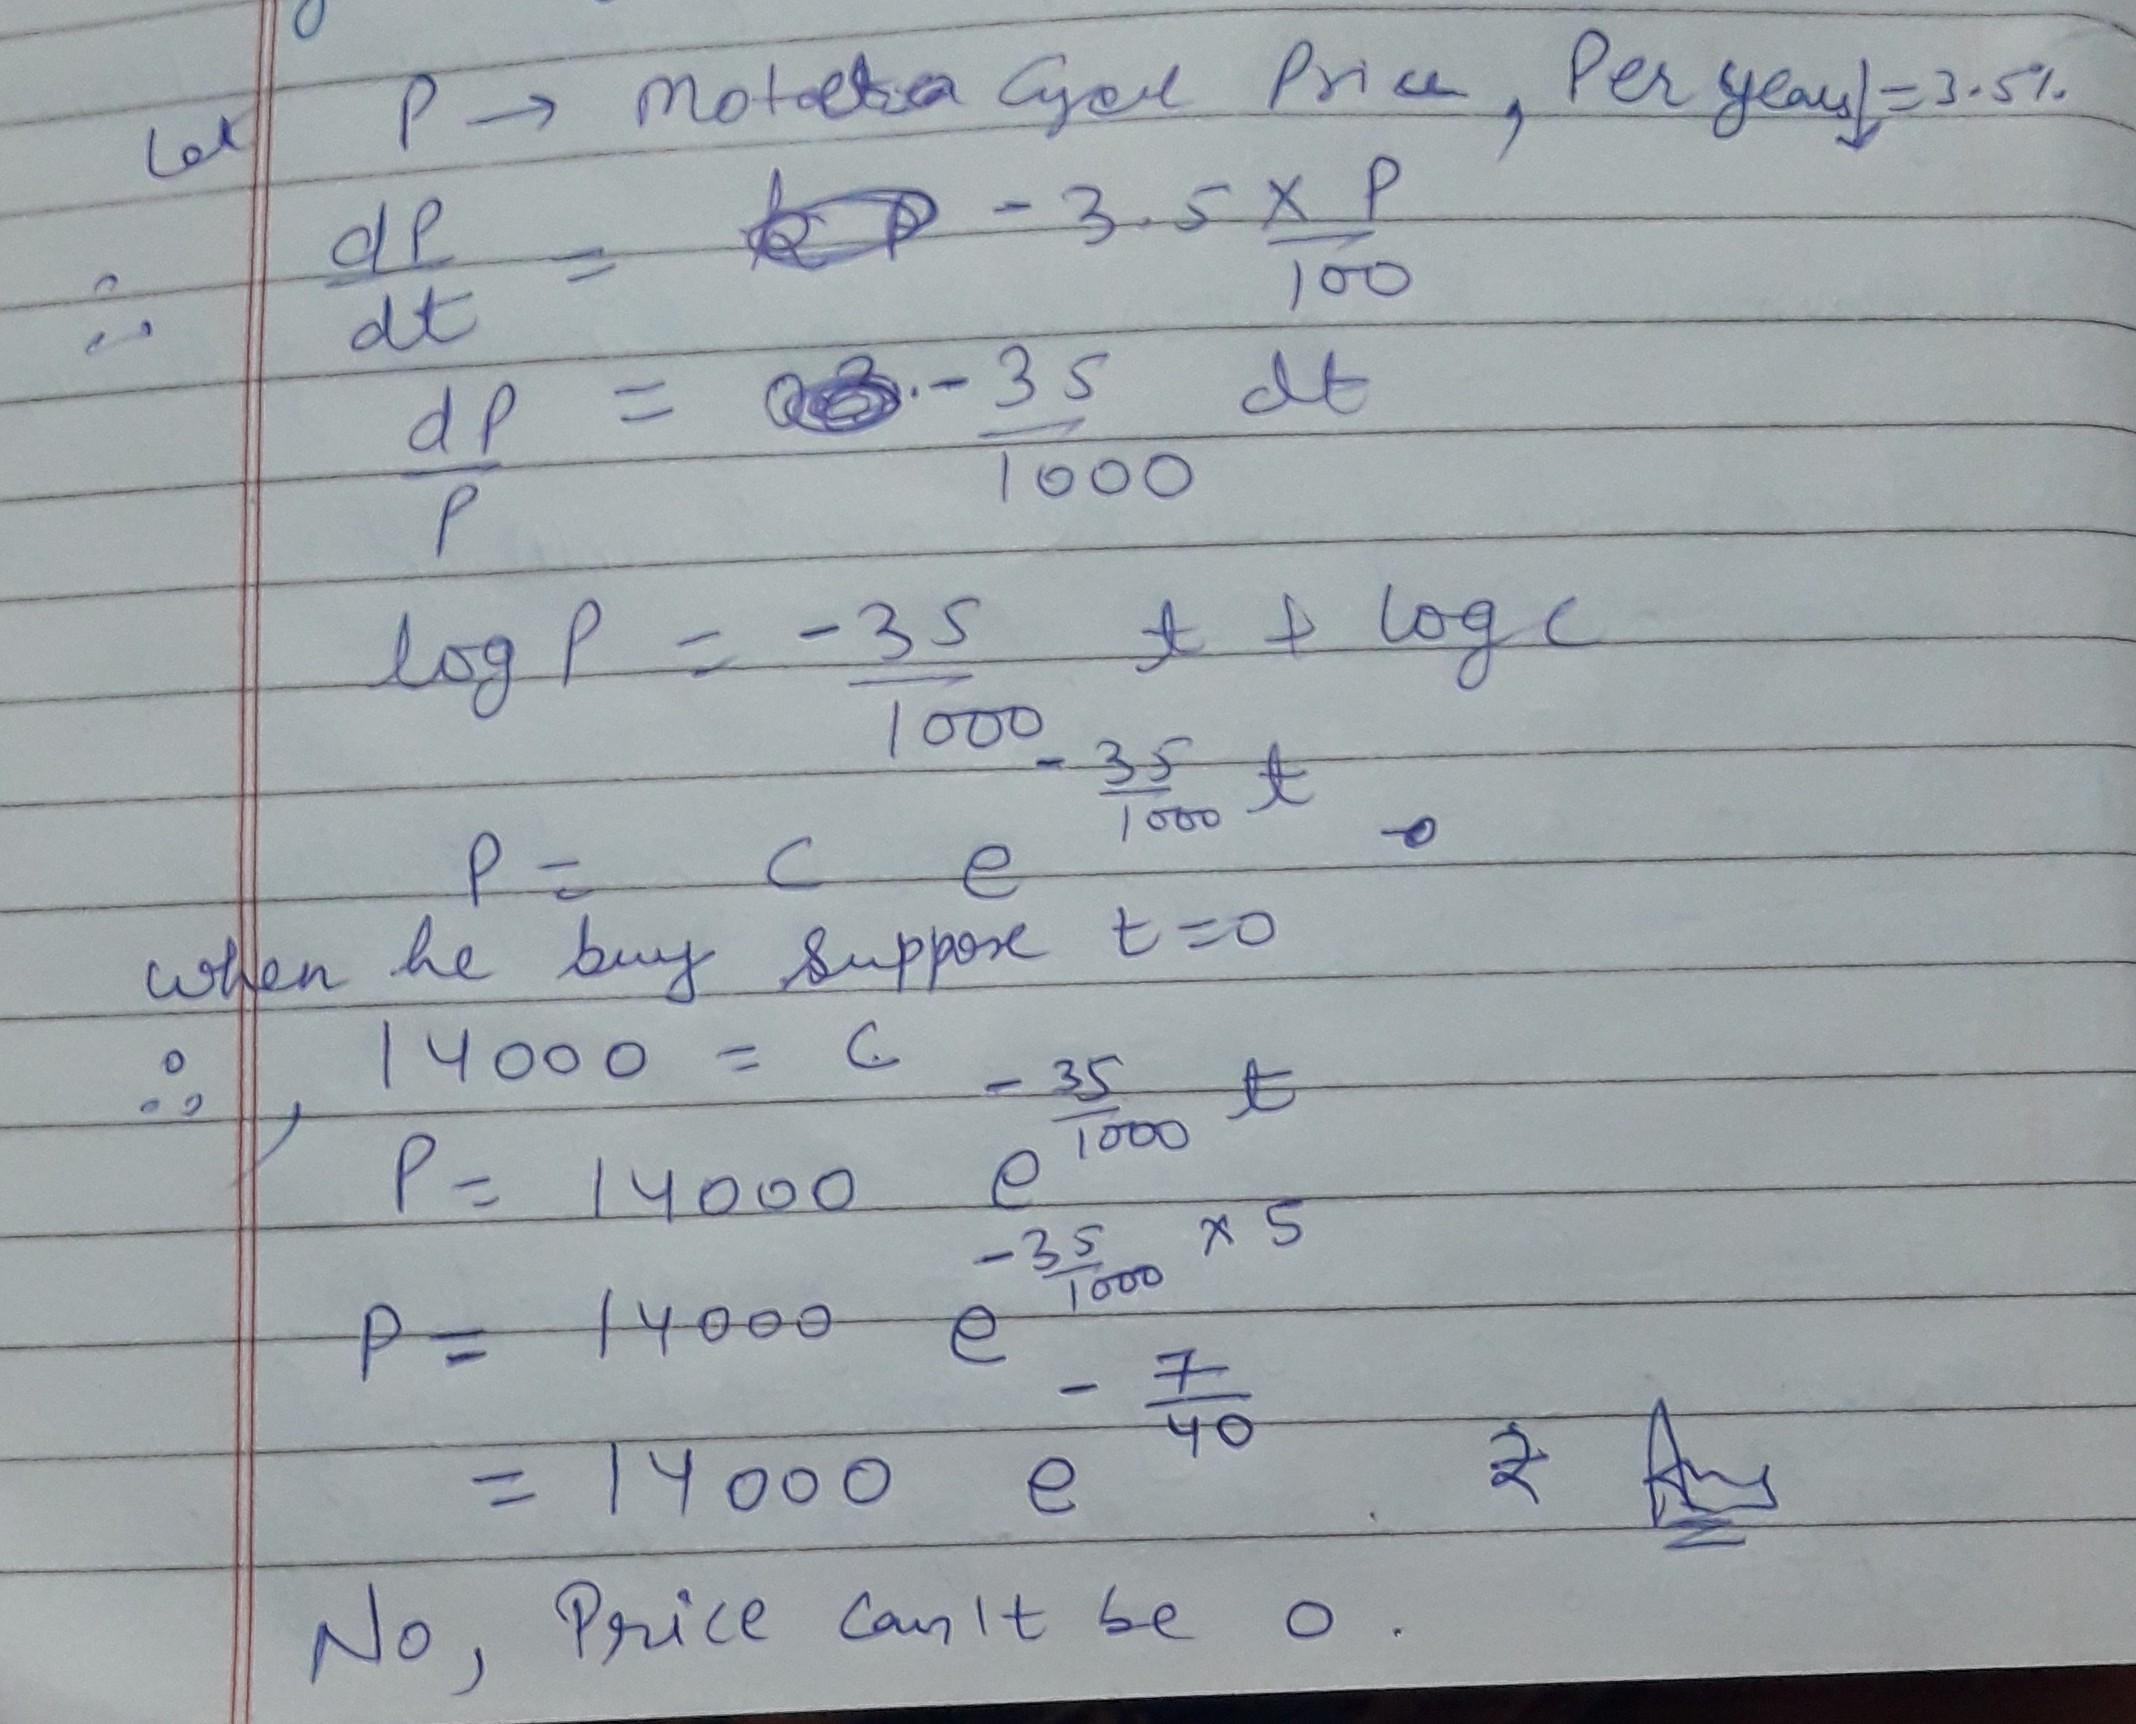 Let P → Cycle Price, Per year ↓ = 3.5%
∴ dP/dt = - 3.5 × P/100
dP/P = -35/1000 dt
log P = -35/1000 t + log c
P = C e^(-35/1000 t)
when he buy suppose t=0
∴, 14000 = C
P = 14000 e^(-35/1000 t)
P = 14000 e^(-35/1000 × 5)
= 14000 e^(-7/40) ₹ Ans
No, Price can't be 0.